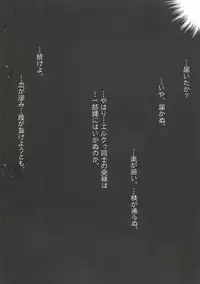 …届いたか？
…いや、届かぬ。
…奥が固い。
…精が通らぬ。
…やはり…エルクゥ同士の受精は
一筋縄にはいかぬのか。
…続けよ。
…血が滲み…腹が裂けようとも。